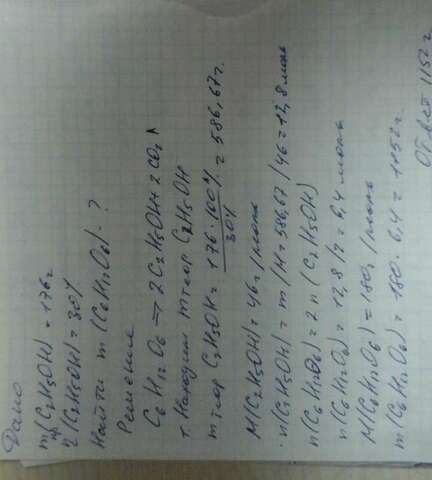 Дано
mпр(C2H5OH) = 176г
η(C2H5OH) = 30%
Найти m(C6H12O6) - ?
Решение
C6H12O6 → 2C2H5OH + 2CO2↑
1. Находим mтеор C2H5OH
mтеор C2H5OH = 176·100% / 30% = 586,67г.
M(C2H5OH) = 46г/моль
n(C2H5OH) = m/M = 586,67/46 = 12,8 моль
n(C6H12O6) = 2n(C2H5OH)
n(C6H12O6) = 12,8/2 = 6,4 моль
M(C6H12O6) = 180г/моль
m(C6H12O6) = 180·6,4 = 1152г.
Ответ 1152г